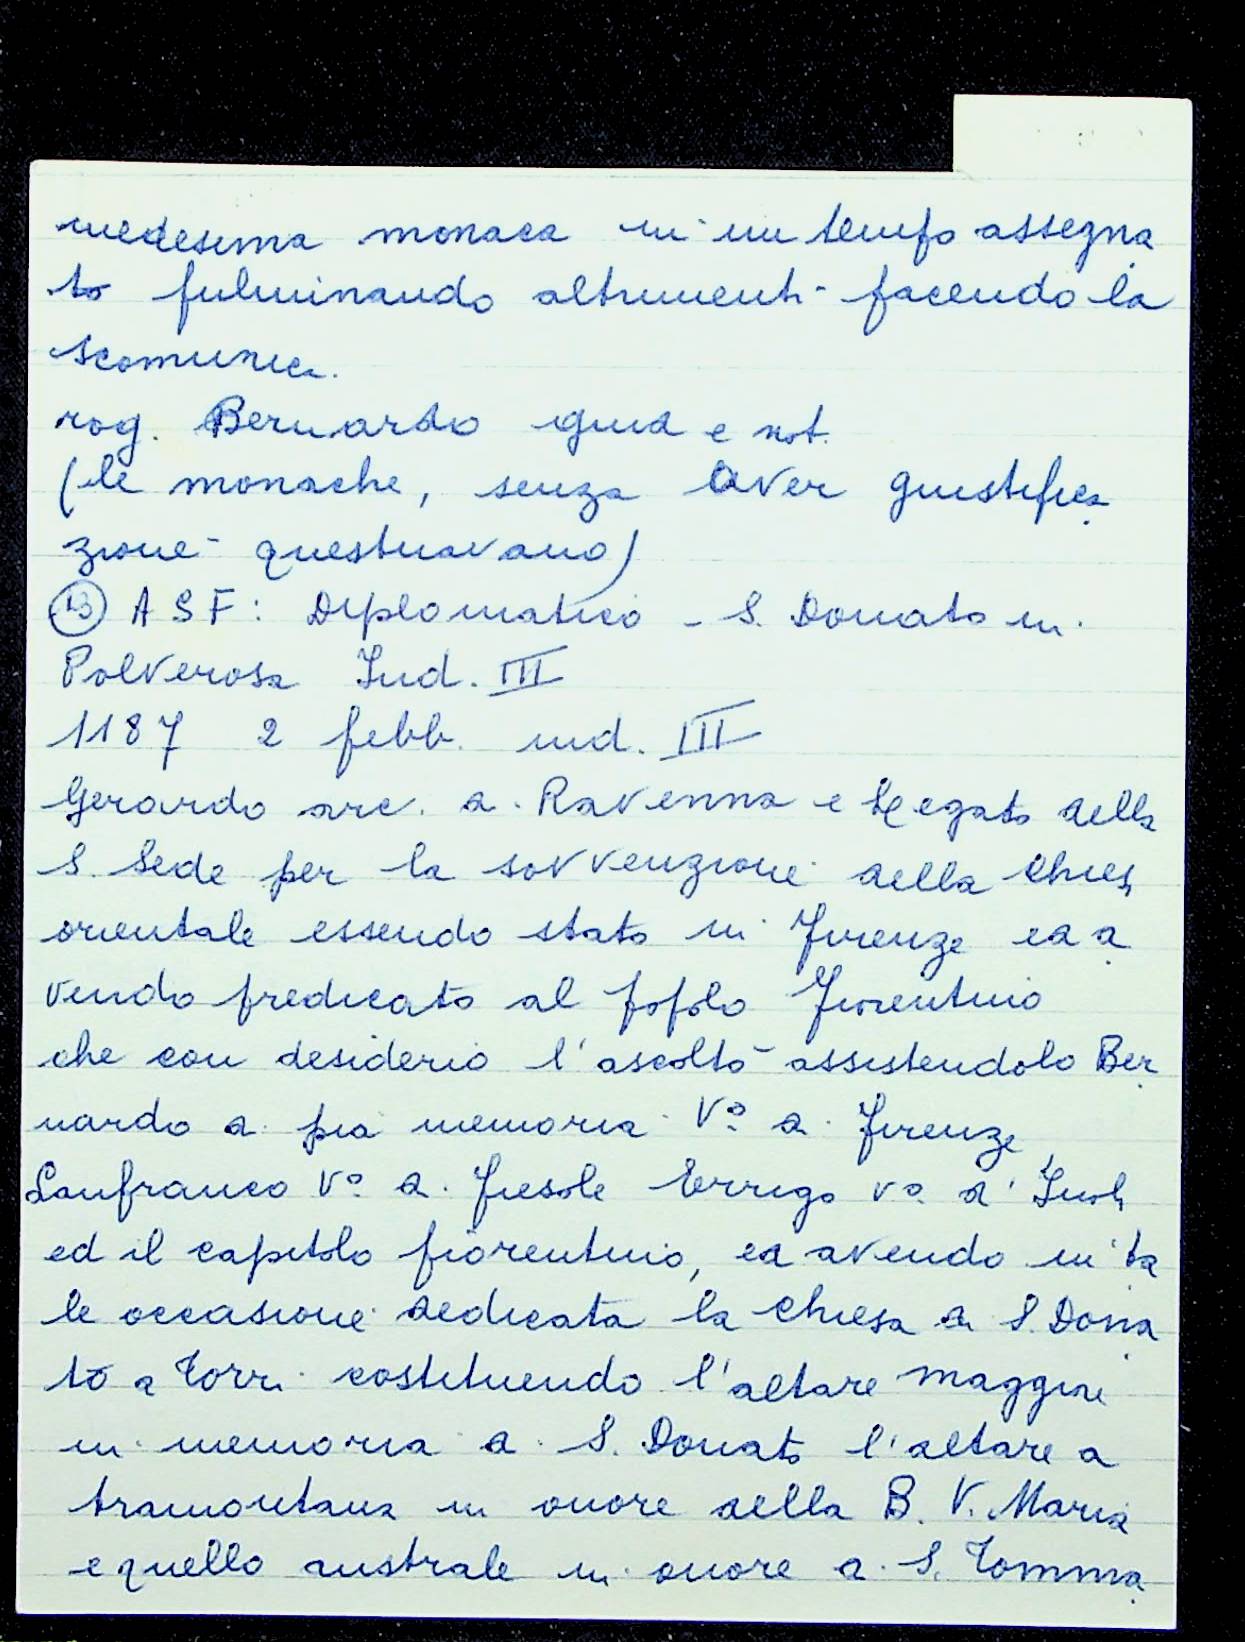 medesima monaca in un tempo assegna
to fulminando altrimenti facendo la
scomunica.
rog. Bernardo giud e not.
(le monache, senza aver giustifica
zione questuavano)
13 ASF: Diplomatico - S. Donato in
Polverosa Ind. III
1187 2 febb. ind. III
Gerardo arc. d. Ravenna e Legato della
S. Sede per la sovvenzione della Chiesa
orientale essendo stato in Firenze ed a
vendo predicato al popolo Fiorentino
che con desiderio l'ascoltò assistendolo Ber
nardo d. pia memoria Vº d. Firenze
Lanfranco Vº d. Fiesole Errigo vº d'
ed il capitolo fiorentino, ed avendo in ta
le occasione dedicata la chiesa d. S. Dona
to a Torri costituendo l'altare maggiore
in memoria d. S. Donato l'altare a
tramontana in onore della B. V. Maria
e quello australe in onore d. S. Tomma